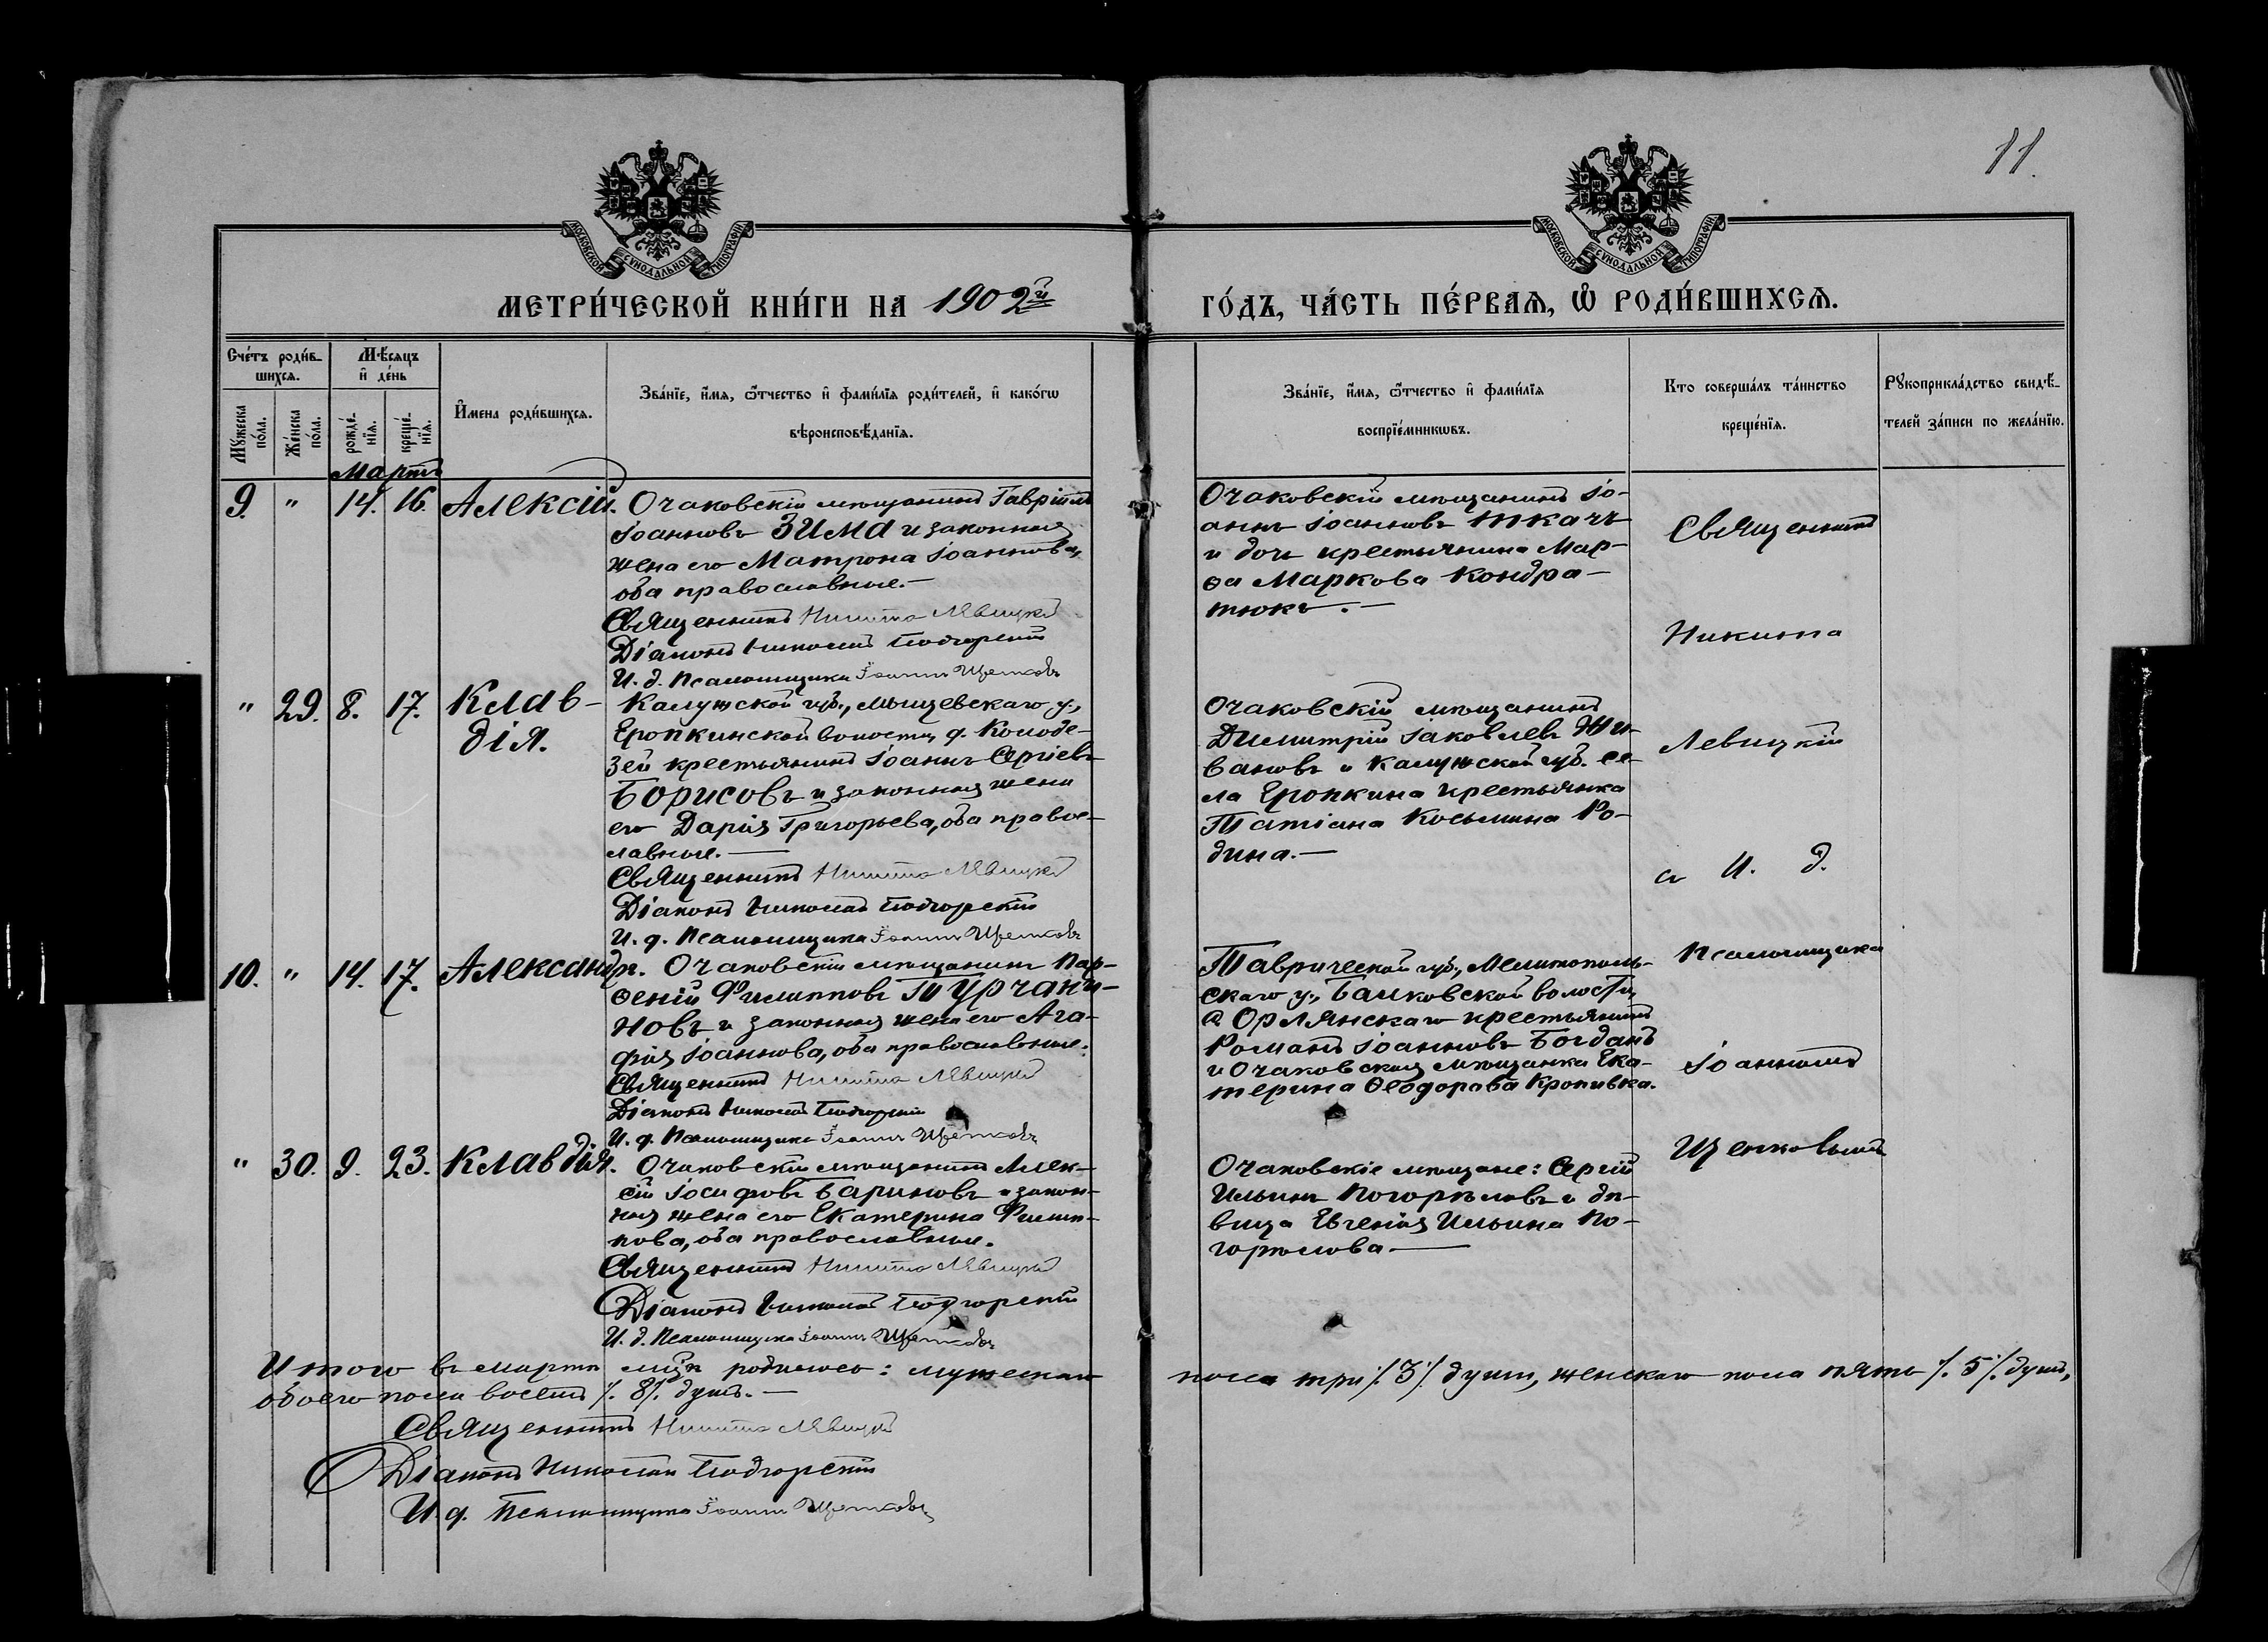 11.
МОСКОВСКОЙ СѴНОДАЛЬНОЙ ТИПОГРАФІИ
МОСКОВСКОЙ СѴНОДАЛЬНОЙ ТИПОГРАФІИ
МЕТРИ́ЧЕСКОЙ КНИ́ГИ НА 1902й
ГО́ДЪ, ЧА́СТЬ ПЕ́РВАЯ, Ѿ РОДИ́ВШИХСЯ.
Сче́тъ роди́в-
шихся.
Мꙋ́жеска по́ла.
Же́нска по́ла.
Мѣ́сяцъ и҆ де́нь
рожде́нїя.
креще́нїя.
И҆мена роди́вшихся.
Зва́нїе, и҆́мя, ѻ҆́тчество и҆ фами́лїя роди́телей, и҆ како́гѡ
вѣроисповѣ́данїя.
Зва́нїе, и҆́мя, ѻ҆́тчество и҆ фами́лїя
воспрїе́мникѡвъ.
Кто соверша́лъ та́инство
креще́нїя.
Рꙋкоприкла́дство свидѣ́-
телей за́писи по жела́нїю.
Мартъ
9. " 14. 16. Алексій.
Очаковскій мѣщанинъ Гавріилъ
Іоанновъ Зима и законная
жена его Матрона Іоаннова,
оба православные.—
Священникъ Никита Левицкій
Діаконъ Николай Подгорскій
И. д. Псаломщика Іоаннъ Щетковъ
Очаковскій мѣщанинъ Іо-
аннъ Іоанновъ Ткачъ
и дочь крестьянина Мар-
ѳа Маркова Кондра-
тюкъ.—
" 29. 8. 17. Клав-
дія.
Калужской губ., Мещевскаго у.,
Еропкинской волости, д. Колоде-
зей крестьянинъ Іоаннъ Сергіевъ
Борисовъ и законная жена
его Дарія Григорьева, оба правос-
лавные.—
Священникъ Никита Левицкій
Діаконъ Николай Подгорскій
И. д. Псаломщика Іоаннъ Щетковъ
Очаковскій мѣщанинъ
Димитрій Іаковлевъ Жи-
вановъ и Калужской губ. се-
ла Еропкина крестьянка
Татіана Косьмина Ро-
дина.—
10. " 14. 17. Александръ.
Очаковскій мѣщанинъ Пар-
ѳеній Филипповъ Турчани-
новъ и законная жена его Ага-
фія Іоаннова, оба православные.
Священникъ Никита Левицкій
Діаконъ Николай Подгорскій
И. д. Псаломщика Іоаннъ Щетковъ
Таврической губ., Мелитополь-
скаго у., Балковской волости,
с. Орлянскаго крестьянинъ
Романъ Іоанновъ Богданъ
и Очаковская мѣщанка Ека-
терина Ѳеодорова Кропивка.
" 30. 9. 23. Клавдія.
Очаковскій мѣщанинъ Алек-
сій Іосифовъ Бариновъ и закон-
ная жена его Екатерина Филип-
пова, оба православные.
Священникъ Никита Левицкій
Діаконъ Николай Подгорскій
И. д. Псаломщика Іоаннъ Щетковъ
Очаковскіе мѣщане: Сергій
Ильинъ Погорѣловъ и дѣ-
вица Евгенія Ильина По-
горѣлова.—
Священникъ
Никита
Левицкій
съ И. д.
Псаломщика
Іоанномъ
Щетковымъ
Итого въ мартѣ мцѣ родилось: мужескаго пола три /.3/. души, женскаго пола пять /.5/. душъ,
обоего пола восемь /.8/. душъ.—
Священникъ Никита Левицкій
Діаконъ Николай Подгорскій
И. д. Псаломщика Іоаннъ Щетковъ